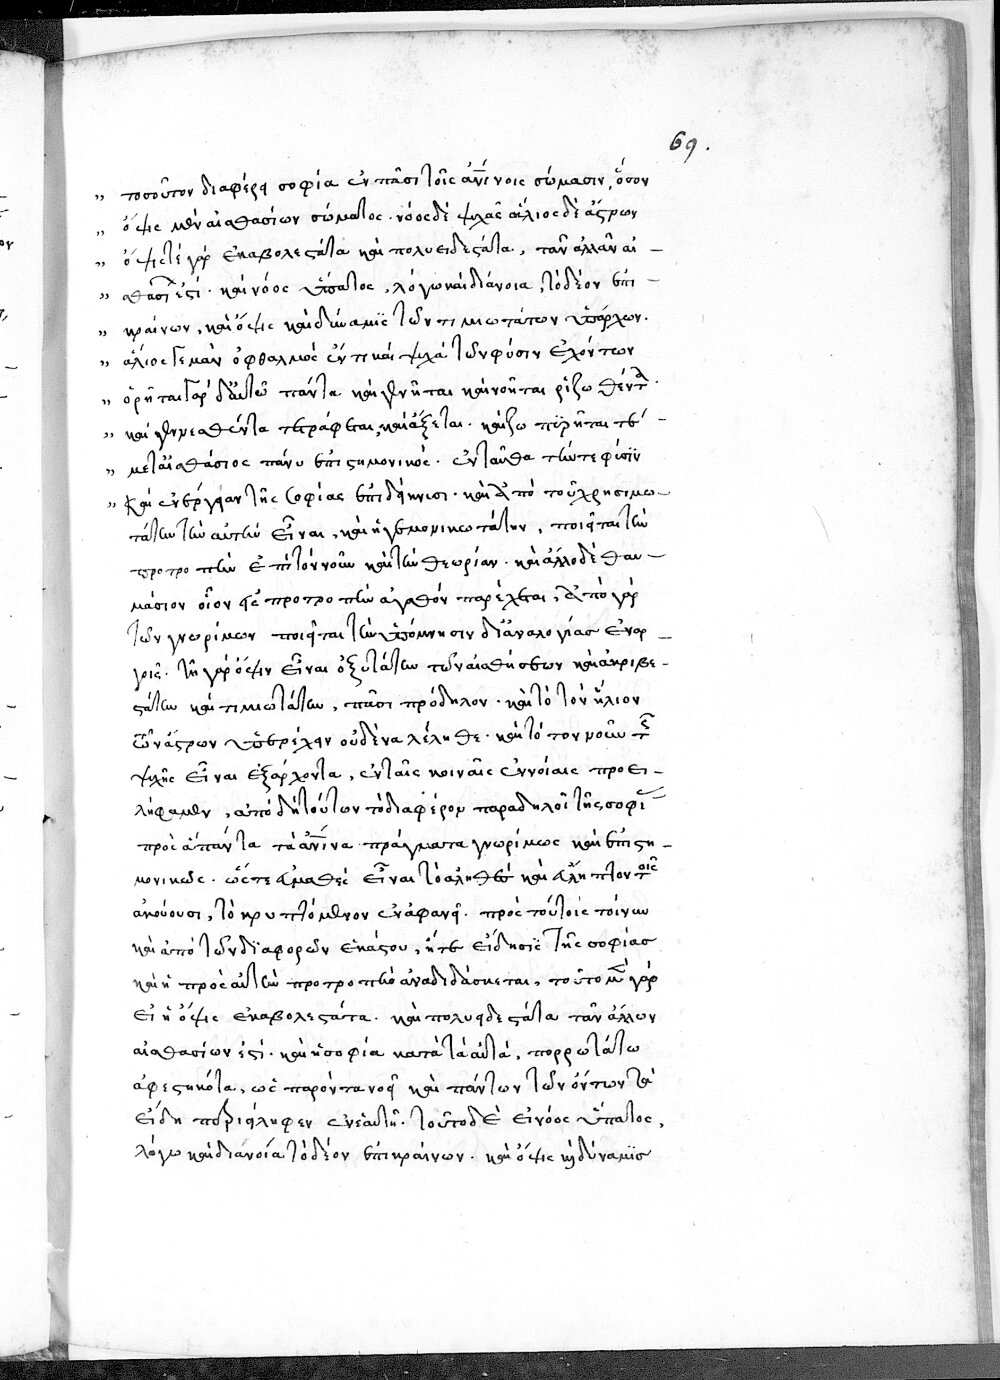 69.
„ τοσοῦτον διαφέρει σοφία ἐν πᾶσι τοῖς ἀν̅ίνοις σώμασιν, ὅσον
„ ὄψις μὲν αἰσθασίων σώματος· νόος δὲ ψυχᾶς ἅλιος δὲ ἄστρων
„ ὄψις τὲ γὰρ ἑκαβολεστάτα καὶ πολυειδεστάτα, τᾶν ἀλλᾶν αἰ-
„ σθασί ἐστί· καὶ νόος ὕπατος, λόγω καὶ διάνοια, τὸ δέον ἐπι-
„ κραίνων, καὶ ὄψις καὶ δύναμις τῶν τιμιωτάτων ὑπάρχων·
„ ἅλιος γεμὰν ὀφθαλμός ἐντι καὶ ψυχὰ τῶν φύσιν ἐχόντων
„ ὁρῆται γὰρ δι' αὐτῶ πάντα καὶ γεννῆται καὶ νοῆται ῥιζωθέντα·
„ καὶ γεννεαθέντα τετράφεται, καὶ ἀέξεται· καὶ ζωπϋρῆται τέ
„ μετ' αἰσθάσιος πάνυ ἐπιστημονικός· ἐνταῦθα τήν τε φύσϊν
„ καὶ ἐνέργειαν τῆς σοφίας ἐπιδείκνυσι· καὶ ἀπὸ τοῦ χρησιμω-
τάτην τὴν αὐτὴν εἶναι, καὶ ἡγεμονικωτάτην, ποιεῖται τὴν
προτροπὴν ἐπὶ τὸν νοῦν καὶ τὴν θεωρίαν· καὶ ἄλλο δὲ θαυ-
μάσιον οἷον εἰς προτροπὴν ἀγαθὸν παρέχεται, ἀπὸ γὰρ
τῶν γνωρίμων ποιεῖται τὴν ὑπόμνησιν δι' ἀναλογίας ἐναρ-
γοῦς· τὴν γὰρ ὄψιν εἶναι ὀξυτάτην τῶν αἰσθήσεων καὶ ἀκριβε-
στάτην καὶ τιμιωτάτην, πᾶσι πρόδηλον· καὶ τὸ τὸν ἥλιον
τῶν ἄστρων ὑπερέχειν οὐδένα λέληθε· καὶ τὸ τὸν νοῦν τῆς
ψυχῆς εἶναι ἐξάρχοντα, ἐν ταῖς κοιναῖς ἐννοίαις προει-
λήφαμεν, ἀπὸ δὴ τούτων τὸ διαφέρον παραδηλοῖ τῆς σοφίας
πρὸς ἅπαντα τὰ ἀν̅ίνα πράγματα γνωρίμως καὶ ἐπιστη-
μονικῶς· ὥστε ἀμαθὲς εἶναι τὸ ἀληθὲς καὶ ἄληπτον τοῖς
ἀκούουσι, τὸ κρυπτόμενον ἐν ἀφανεῖ· πρὸς τούτοις τοίνυν
καὶ ἀπὸ τῶν διαφορῶν ἑκάστου, ἥτε εἴδησις τῆς σοφίας
καὶ ἡ πρὸς αὐτὴν προτροπὴ ἀναδιδάσκεται, τοῦτο μὲν γὰρ
εἰ ἡ ὄψις ἑκαβολεστάτα· καὶ πολυειδεστάτα τᾶν ἄλλων
αἰσθασίων ἐστί· καὶ ἡ σοφία κατὰ τὰ αὐτά, πορρωτάτω
ἀφεστηκότα, ὡς παρόντα νοεῖ καὶ πάντων τῶν ὄντων τὰ
εἴδη περιείληφεν ἐν ἑαυτῆ· τοῦτο δὲ εἰ νόος ὕπατος,
λόγω καὶ διανοία τὸ δέον ἐπικραίνων· καὶ ὄψις καὶ δύναμις